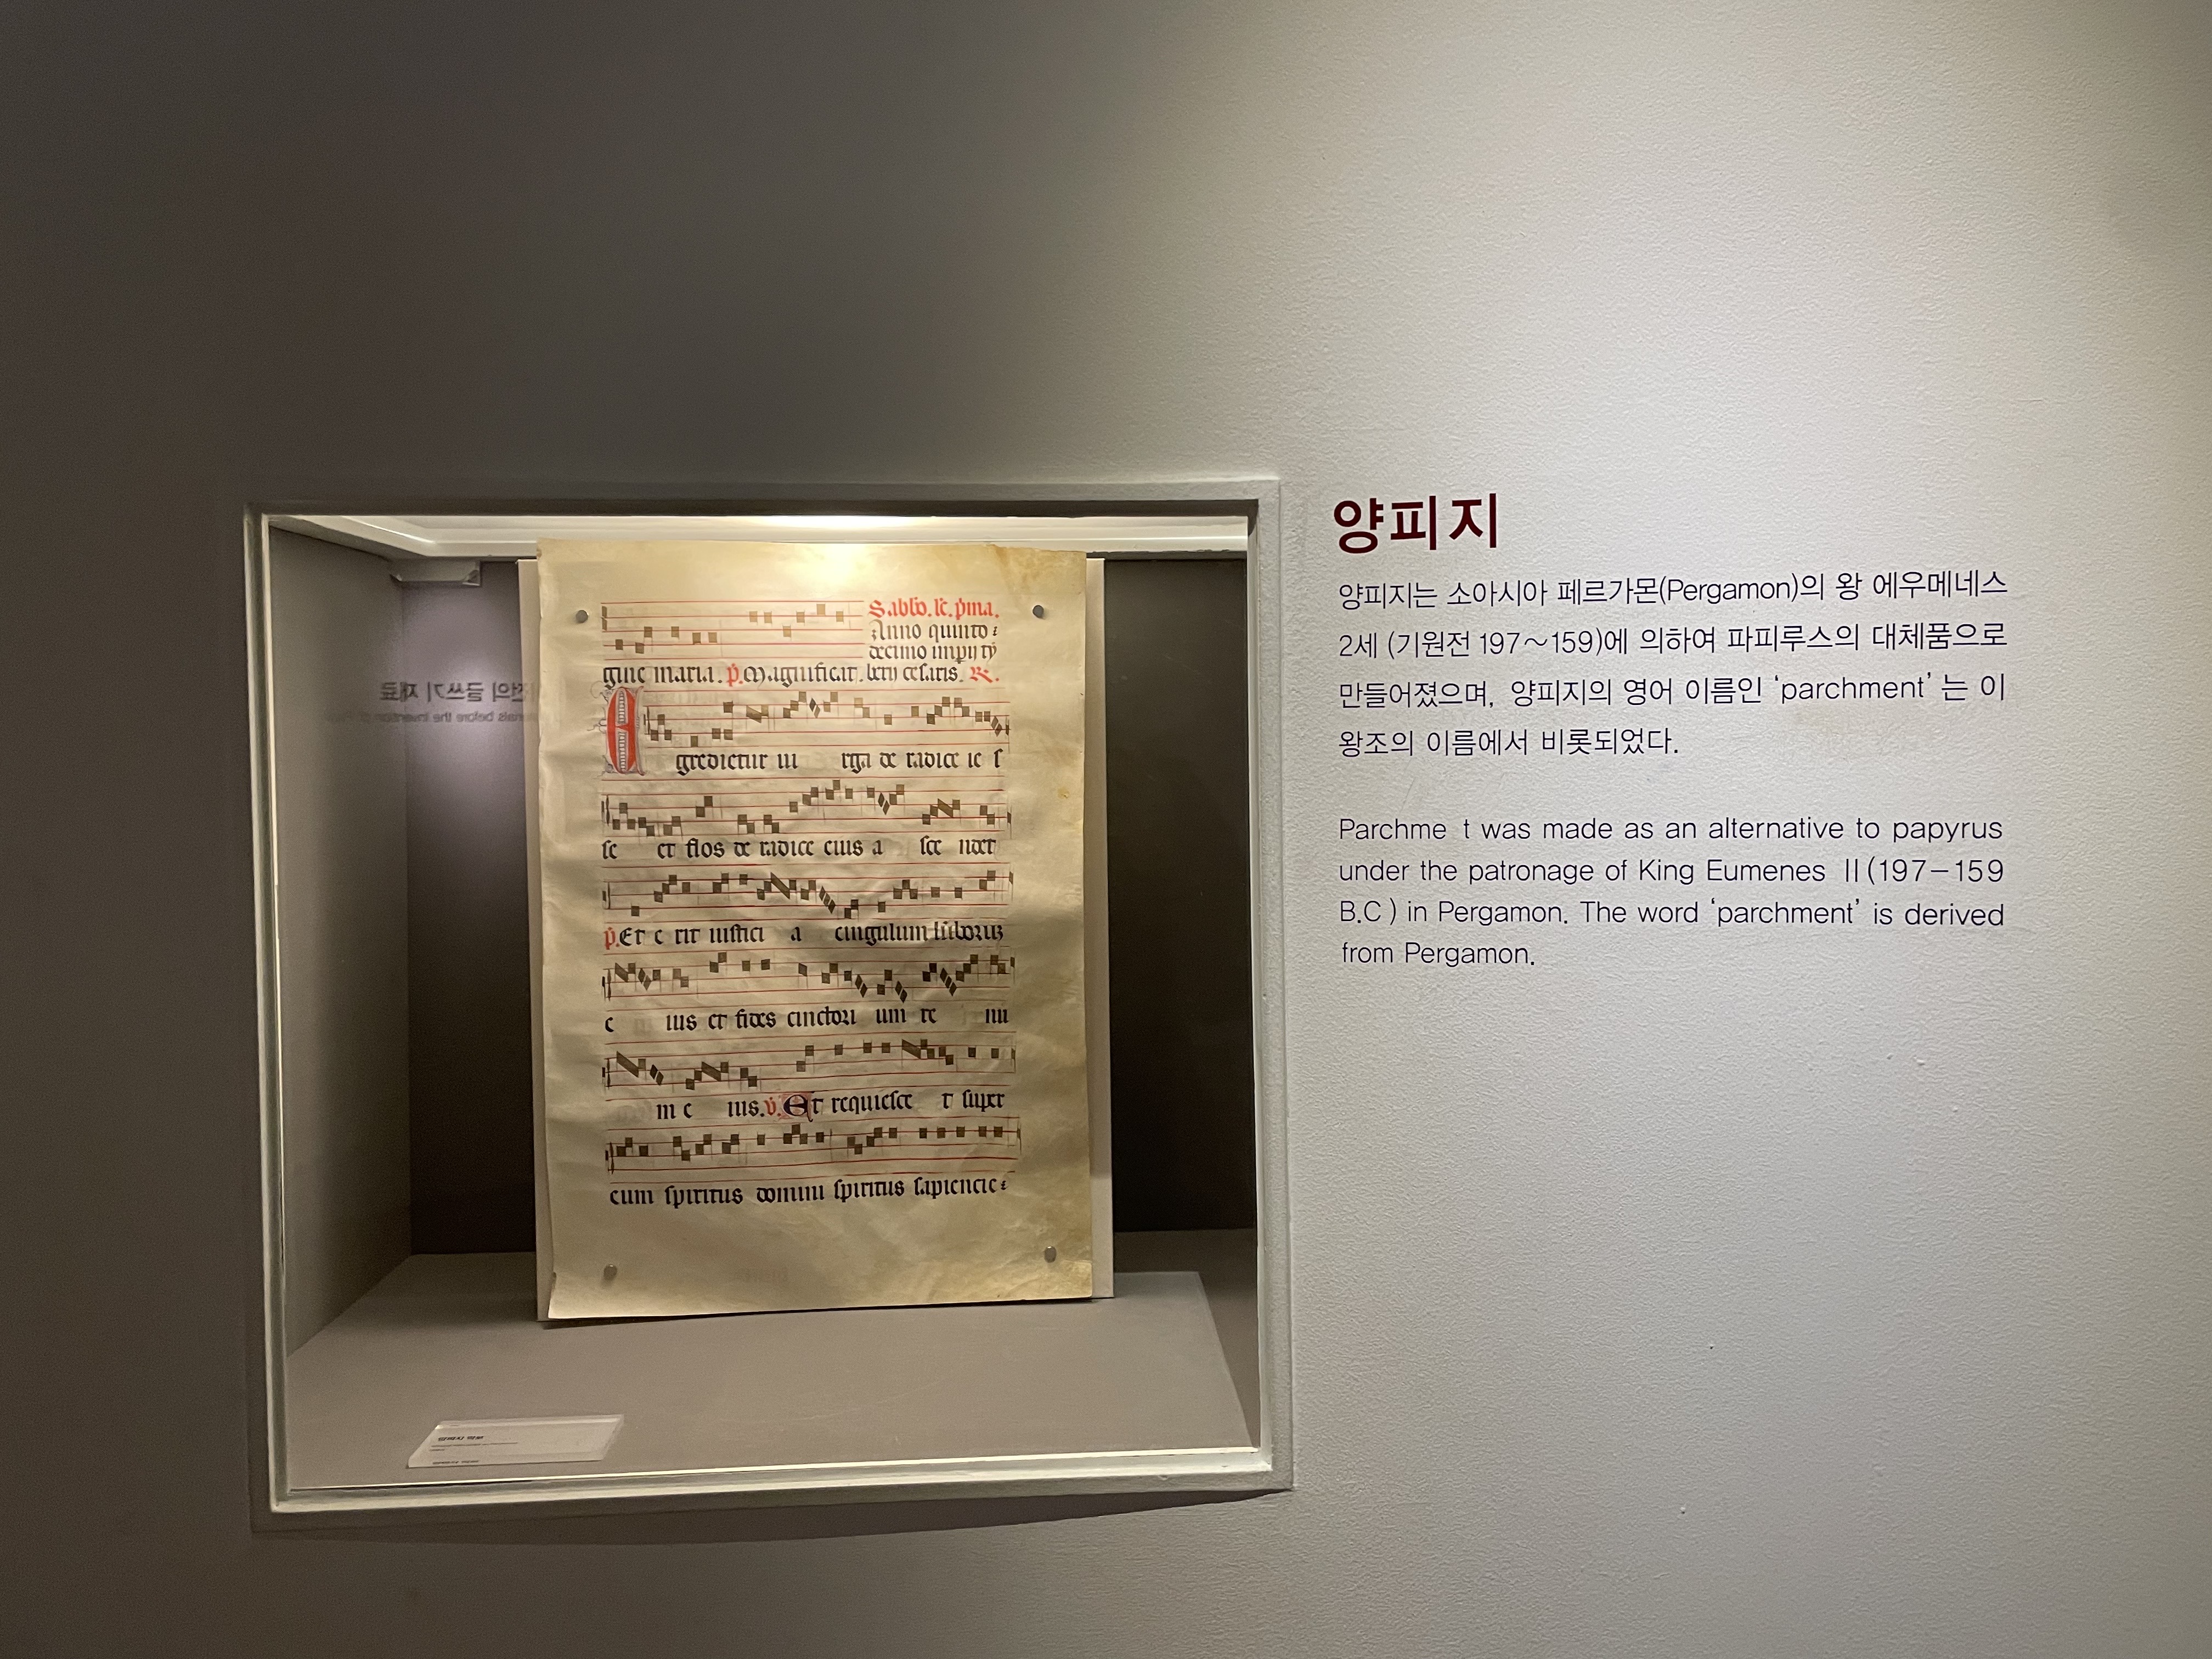 양피지
양피지는 소아시아 페르가몬(Pergamon)의 왕 에우메네스
2세 (기원전 197～159)에 의하여 파피루스의 대체품으로
만들어졌으며, 양피지의 영어 이름인 ‘parchment’ 는 이
왕조의 이름에서 비롯되었다.
Parchme t was made as an alternative to papyrus
under the patronage of King Eumenes II (197－159
B.C ) in Pergamon. The word ‘parchment’ is derived
from Pergamon.
Anno quinto
decimo
gine maria. Magnificat.
Egredietur ui rga de radice ie s
se et flos de radice eius a sce ndet
Et e rit iustici a cingulum
e ius et fides cinctori um re nu
m e ius. Et requiesce t super
cum spiritus domini spiritus sapiencie